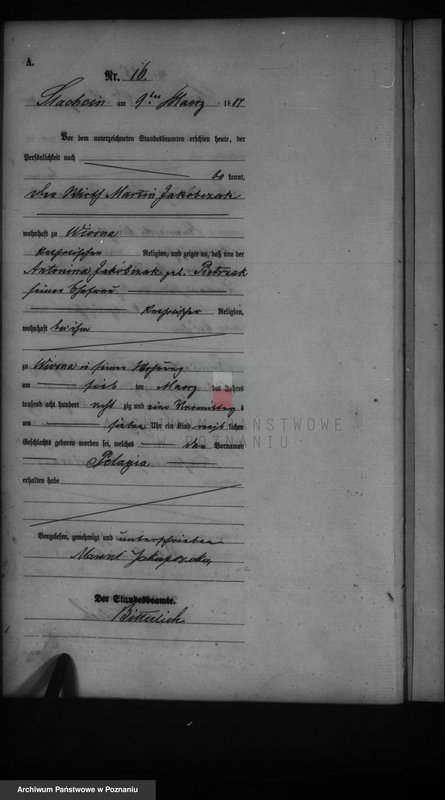 A.
Nr. 16.
Stachein am 9ten Maerz 1887
Vor dem unterzeichneten Standesbeamten erschien heute, der
Persönlichkeit nach
be kannt,
der Wirth Martin Jakóbczak
wohnhaft zu Wiorna
katholischer Religion, und zeigte an, daß von der
Antonina Jakóbczak geb. Pietrzak
seiner Ehefrau
katholischer Religion,
wohnhaft bei ihm
zu Wiorna in seiner Wohnung
am ten Maerz des Jahres
tausend acht hundert acht zig und Vormittag s
um sieben Uhr ein Kind weib lichen
Geschlechts geboren worden sei, welches den Vornamen
Pelagia
erhalten habe
Vorgelesen, genehmigt und unterschrieben
Der Standesbeamte.
Bitterlich
ARCHIWUM PAŃSTWOWE
W POZNANIU
Archiwum Państwowe w Poznaniu